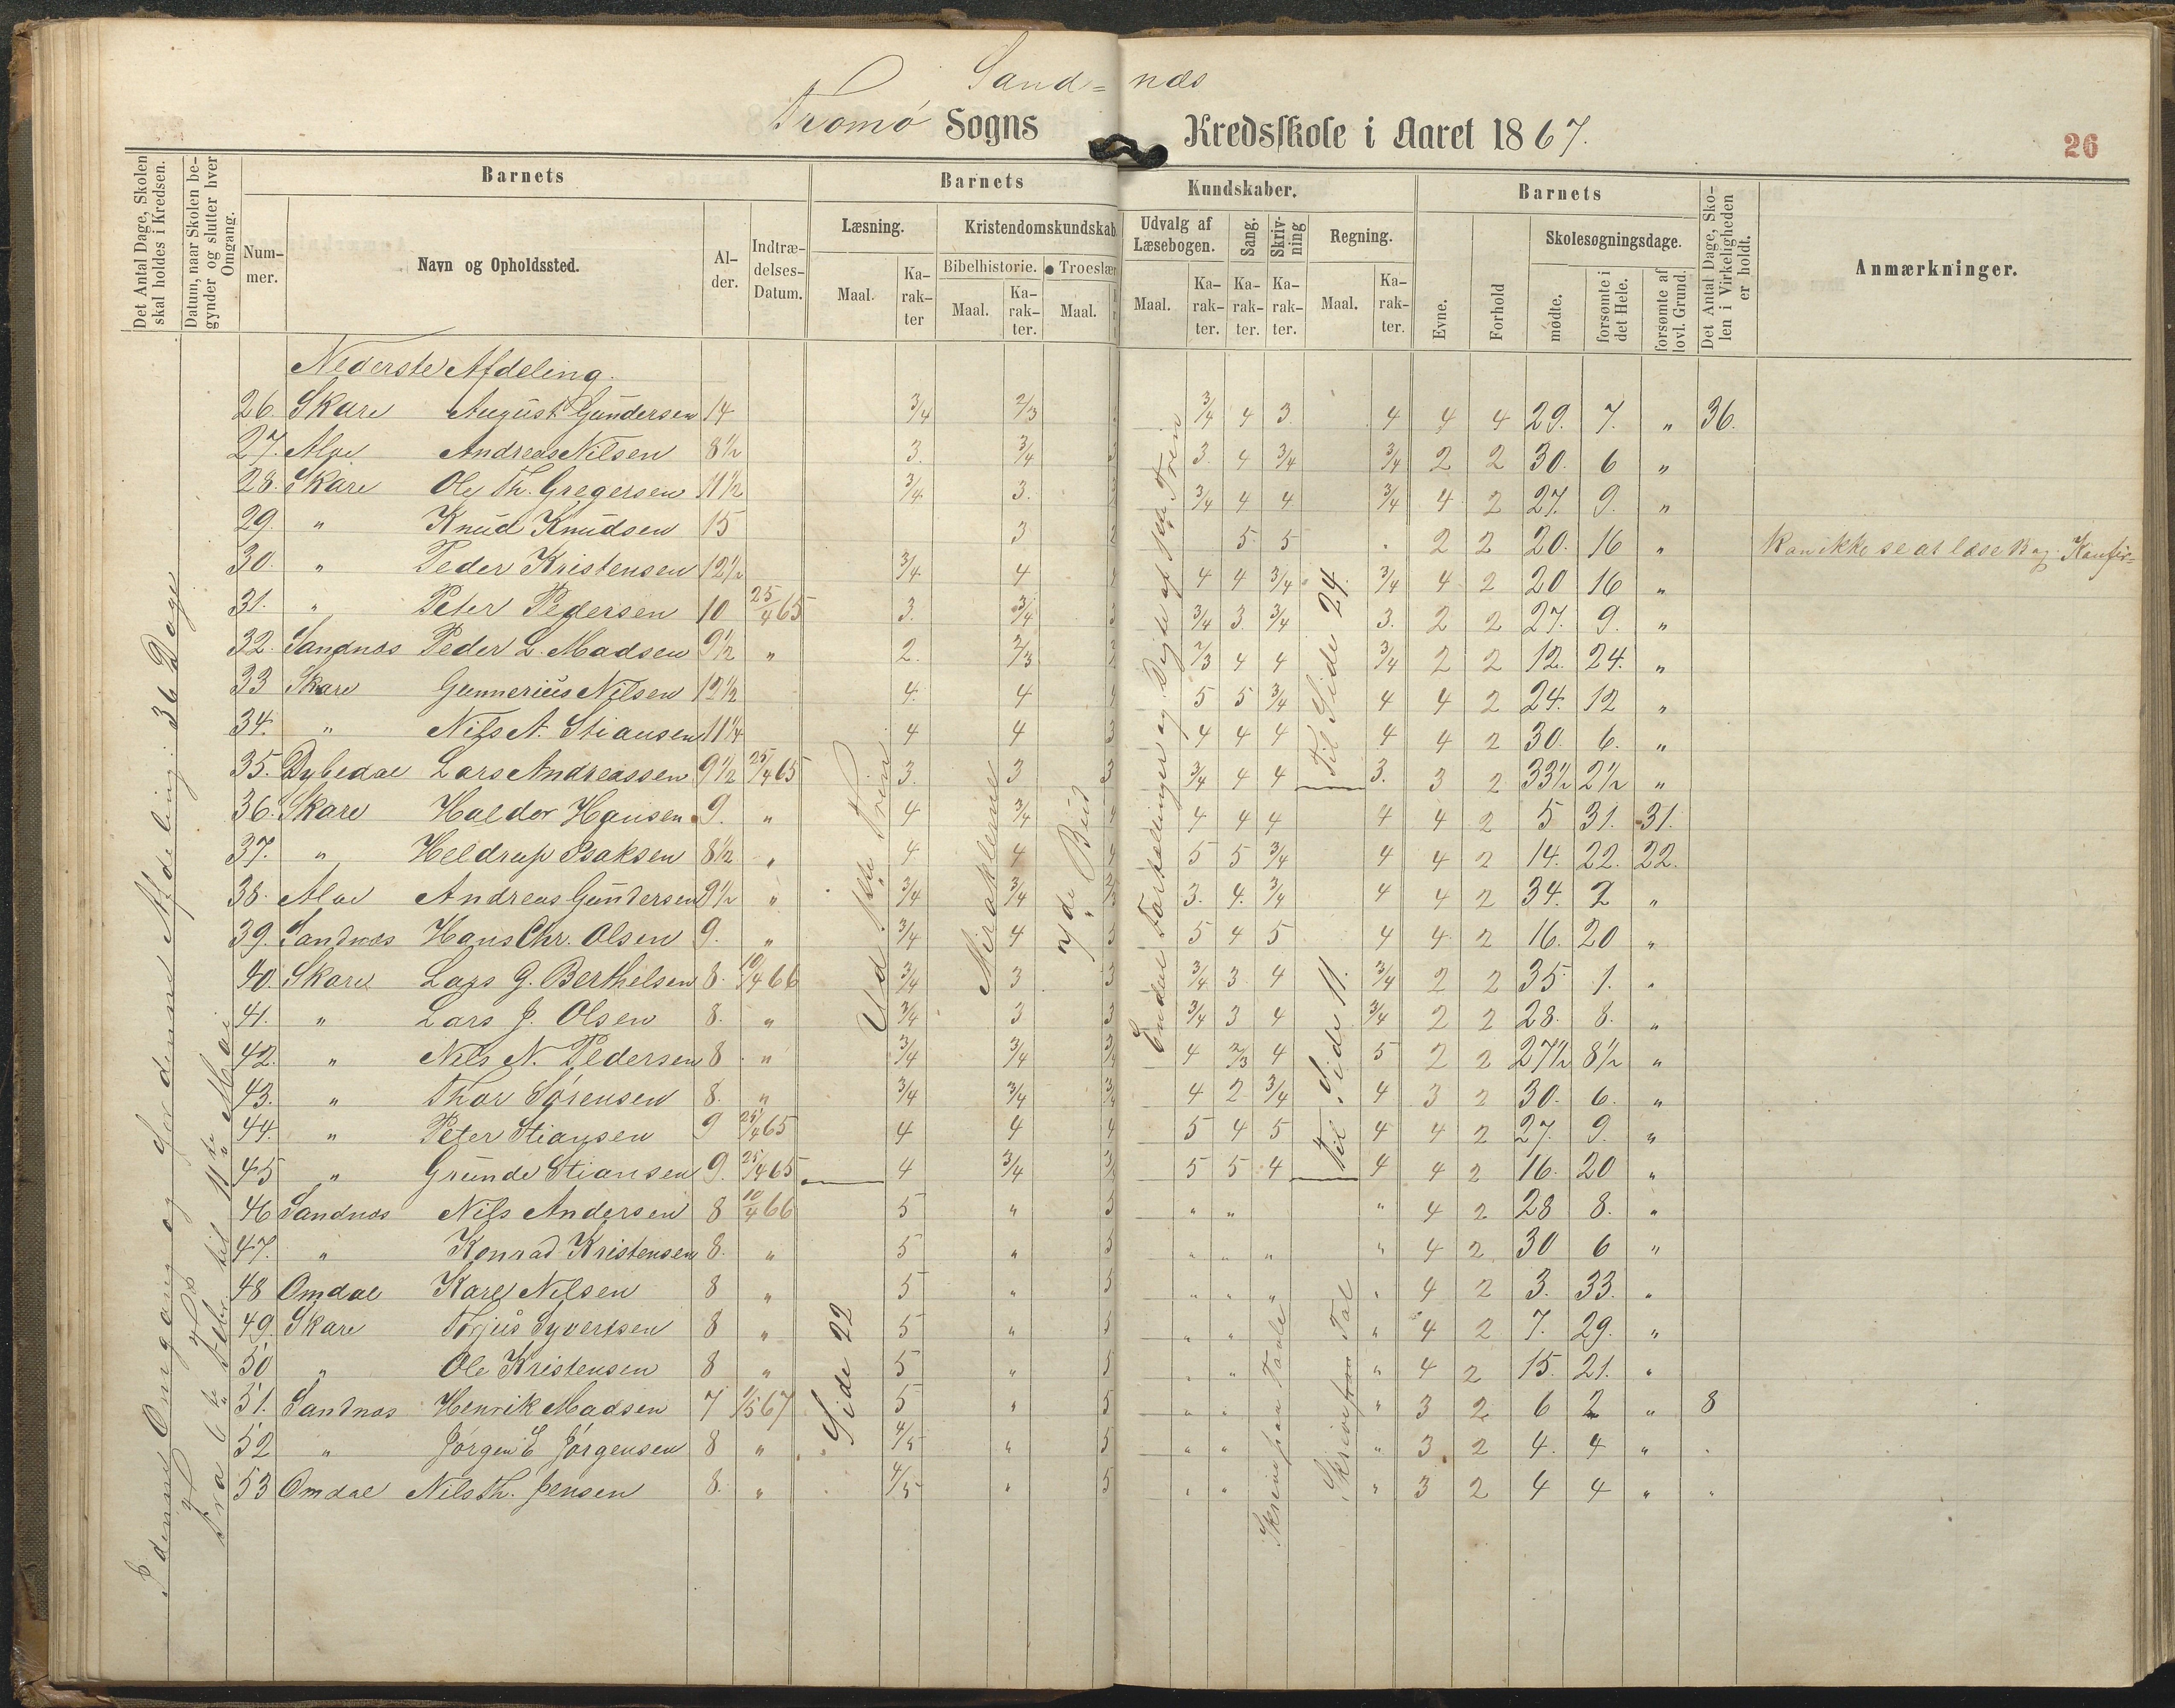 Sand= næs
Tromø Sogns Kredsskole i Aaret 1867.
26
Det Antal Dage, Skolen skal holdes i Kredsen.
Datum, naar Skolen begynder og slutter hver Omgang.
Barnets
Barnets
Kundskaber.
Barnets
Det Antal Dage, Skolen i Virkeligheden er holdt.
Anmærkninger.
Nummer.
Navn og Opholdssted.
Alder.
Indtrædelses-Datum.
Læsning.
Kristendomskundskab
Udvalg af Læsebogen.
Sang.
Skrivning
Regning.
Evne.
Forhold
Skolesøgningsdage.
Maal.
Karakter
Bibelhistorie.
Troeslær
Maal.
Karakter.
Maal.
Maal.
Karakter.
Karakter.
Karakter.
Maal.
Karakter.
mødte.
forsømte i det Hele.
forsømte af lovl. Grund.
Nederste Afdeling.
26. Skare August Gundersen 14 3/4 2/3 3/4 4 3. 4 4 4 29. 7. " 36.
27. Alve Andreas Nilsen 8 1/2 3. 3/4 3 3. 4 3/4 3/4 2 2 30. 6 "
28. Skare Ole Th. Gregersen 11 1/2 3/4 3. 3/4 4 4 3/4 4 2 27. 9. "
29. " Knud Knudsen 15 3 2 5 5 2 2 20. 16 " Kan ikke se at læse Bog. Konfir=
30. " Peder Kristensen 12 1/2 3/4 4 4 4 4 3/4 3/4 4 2 20 16 "
31. " Peter Pedersen 10 25/4 65 3. 3/4 3 3/4 3. 3/4 3. 2 2 27. 9. "
32. Sandnæs Peder L. Madsen 9 1/2 " 2. 2/3 2/3 4 4 3/4 2 2 12. 24. "
33 Skare Gunnerius Nilsen 12 1/2 4. 4 4 5 5 3/4 4 4 2 24. 12 "
34. " Nils A. Stiansen 11 1/4 4 4 3 4 4 4 4 4 2 30. 6. "
35. Dybedal Lars Andreassen 9 1/2 25/4 65 3. 3 3 3/4 4 4 3. 3 2 33 1/2 2 1/2 "
36. Skare Haldor Hansen 9. " 4 3/4 4 4 4 4 4 4 2 5 31. 31.
37. " Heldrup Isaksen 8 1/2 " 4 4 4 5 5 3/4 4 4 2 14. 22. 22.
38. Alve Andreas Gundersen 9 1/2 " 3/4 3/4 3. 4. 3/4 4 4 2 34. 2 "
39. Sandnæs Hans Chr. Olsen 9. " 3/4 4 3 5 4 5 4 4 2 16. 20 "
40. Skare Lars G. Berthelsen 8. 10/4 66 3/4 3 3 3/4 3 4 3/4 2 2 35 1. "
41. " Lars J. Olsen 8. " 3/4 3 3 3/4 3 4 3/4 2 2 28. 8. "
42. " Nils N. Pedersen 8 " 3/4 3/4 3/4 4 2/3 4 5 2 2 27 1/2 8 1/2 "
43. " Thor Sørensen 8. " 3/4 3/4 3/4 4 2 3/4 4 3 2 30. 6. "
44. " Peter Stiansen 9 25/4 65 4 4 4 5 4 5 4 4 2 27. 9. "
45 " Grunde Stiansen 9. 25/4 65 4 3/4 5 5 4 4 4 2 16. 20 "
46 Sandnæs Nils Andersen 8 10/4 66 5 " 5 " " " 4 2 28 8. "
47. " Konrad Kristensen 8. " 5 " 5 " " " " 4 2 30 6 "
48 Omdal Karl Nilsen 8 " 5 " 5 " " " " 4 2 3. 33. "
49. Skare Torjus Syvertsen 8 " 5 " 5 " " " 4 2 7. 29. "
50 " Ole Kristensen 8 " 5 " 5 " " " 4 2 15. 21. "
51. Sandnæs Henrik Madsen 7 1/5 67 5 " 5 " " " 3 2 6 2 " 8
52 " Jørgen E Jørgensen 8 " 4/5 " 5 " " " 3 2 4. 4 " "
53 Omdal Nils Th. Jensen 8. " 4/5 " 5 " " " 3 2 4 4 " "
I denne Omgang og for denne Afdeling: 36 Dage
Fra 6te Febr. til 11te Mai
Ud 1ste Trin
Side 22
Miraklerne
7de Bud
Endel Fortællinger og Digte af 1ste Trin
Til Side 24.
Til Side 11.
Skrive paa Tavle
Skrive Tal